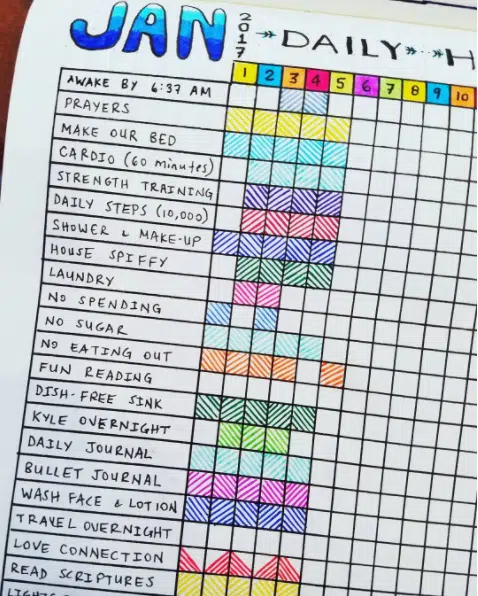 JAN 2017 DAILY H
1 2 3 4 5 6 7 8 9 10
AWAKE BY 6:37 AM
PRAYERS
MAKE OUR BED
CARDIO (60 minutes)
STRENGTH TRAINING
DAILY STEPS (10,000)
SHOWER & MAKE-UP
HOUSE SPIFFY
LAUNDRY
NO SPENDING
NO SUGAR
NO EATING OUT
FUN READING
DISH-FREE SINK
KYLE OVERNIGHT
DAILY JOURNAL
BULLET JOURNAL
WASH FACE & LOTION
TRAVEL OVERNIGHT
LOVE CONNECTION
READ SCRIPTURES
LIGHTS